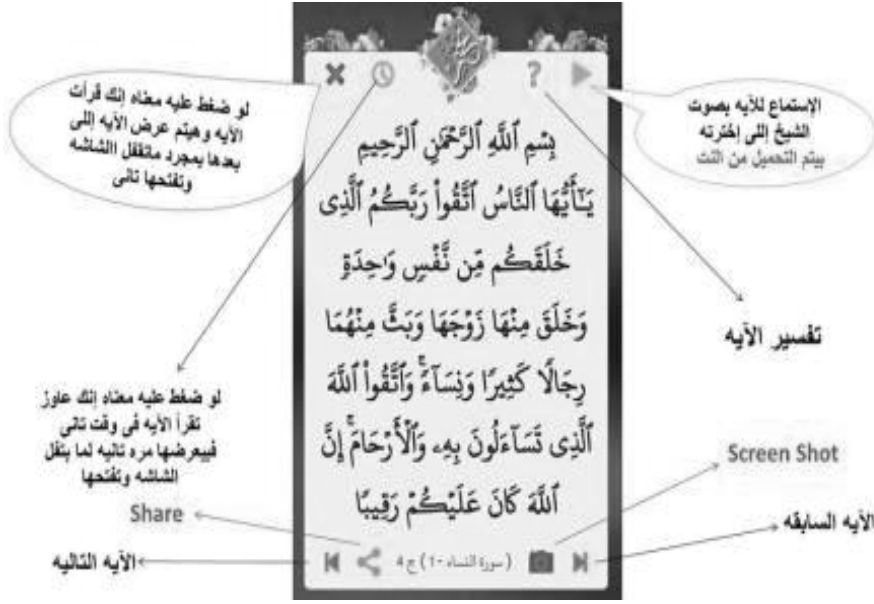 لو ضغط عليه معناه إنك قرأت
الآيه وهيتم عرض الآيه إللى
بعدها بمجرد ماتقفل االشاشه
وتفتحها تانى
الإستماع للآيه بصوت
الشيخ إللى إخترته
بيتم التحميل من النت
?
بِسْمِ ٱللَّهِ ٱلرَّحْمَٰنِ ٱلرَّحِيمِ
يَـٰٓأَيُّهَا ٱلنَّاسُ ٱتَّقُوا۟ رَبَّكُمُ ٱلَّذِى
خَلَقَكُم مِّن نَّفْسٍ وَٰحِدَةٍ
وَخَلَقَ مِنْهَا زَوْجَهَا وَبَثَّ مِنْهُمَا
رِجَالًا كَثِيرًا وَنِسَآءً ۚ وَٱتَّقُوا۟ ٱللَّهَ
ٱلَّذِى تَسَآءَلُونَ بِهِۦ وَٱلْأَرْحَامَ ۚ إِنَّ
ٱللَّهَ كَانَ عَلَيْكُمْ رَقِيبًا
تفسير الآيه
لو ضغط عليه معناه إنك عاوز
تقرأ الآيه فى وقت تانى
فيبعرضها مره تانيه لما بتقفل
الشاشه وتفتحها
Screen Shot
Share
الآيه السابقه
الآيه التاليه
( سورة النساء -١ ) ج 4